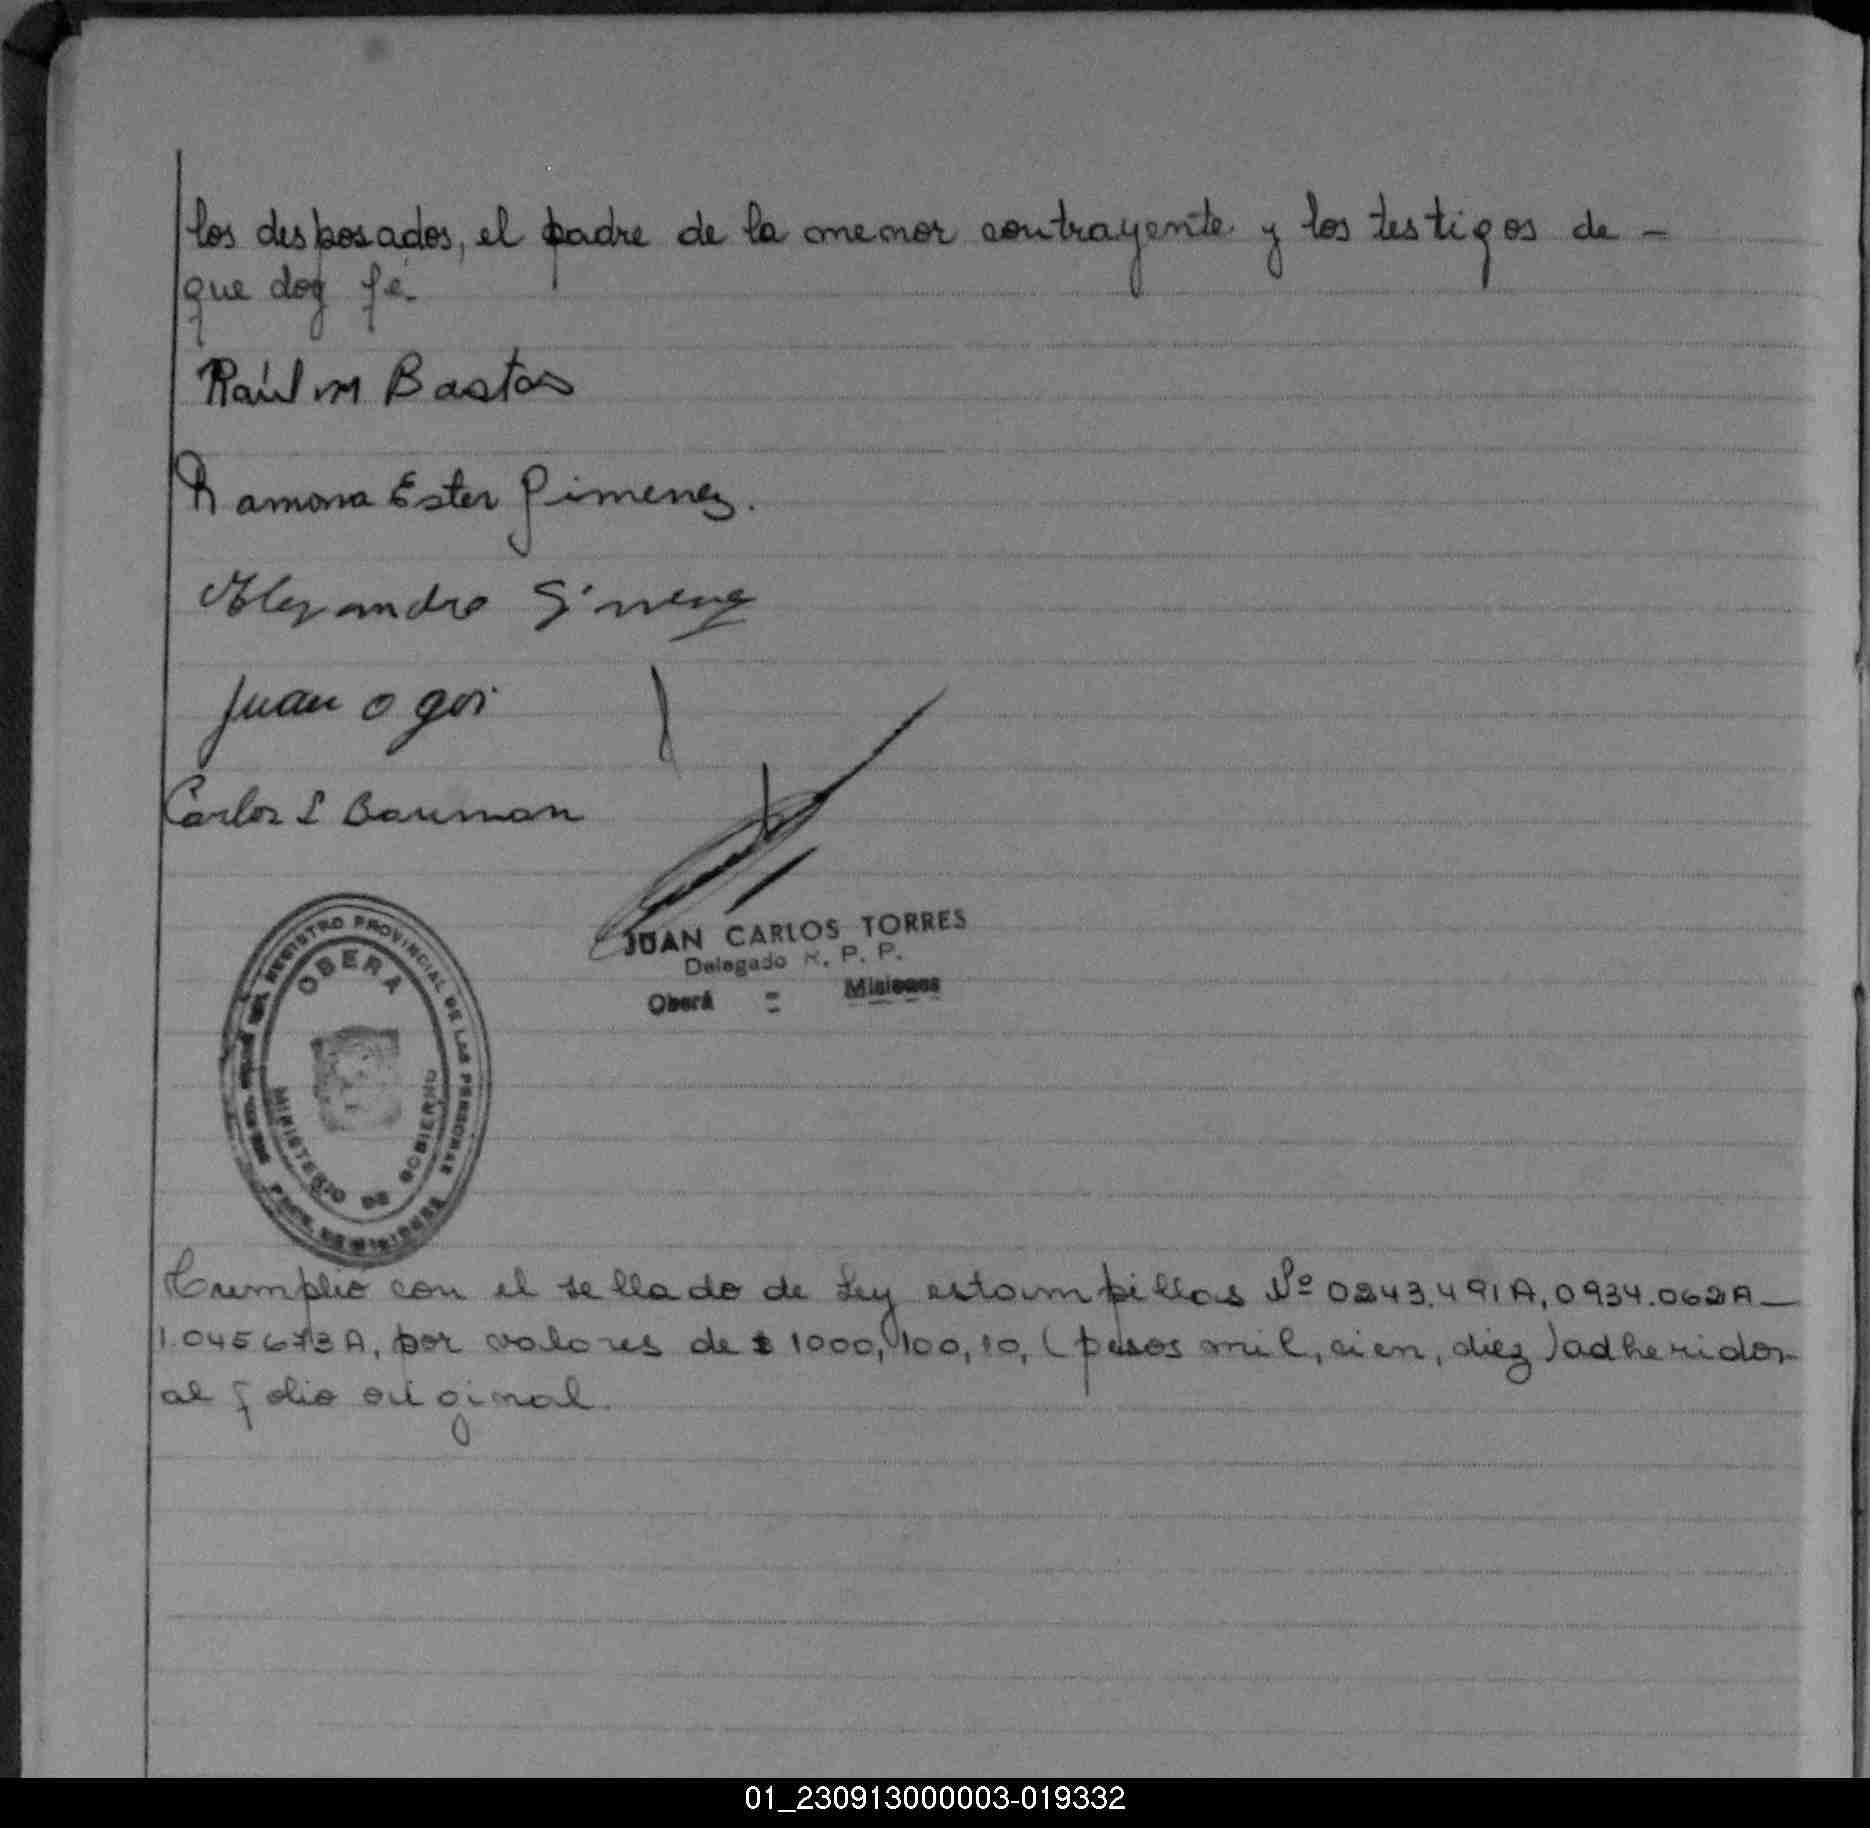 los desposados, el padre de la menor contrayente y los testigos de -
que doy fé.
Raúl M Bastos
Ramona Ester Gimenez.
Alejandro Gimenez
Juan O goi
Carlos L Bauman
JUAN CARLOS TORRES
Delegado R. P. P.
Oberá = Misiones
REGISTRO PROVINCIAL DE LAS PERSONAS
OBERA
MINISTERIO DE GOBIERNO
PROV. DE MISIONES
Cumplió con el sellado de Ley estampillas Nº 0243.491A, 0934.062A -
1.045673A, por valores de $ 1000, 100, 10, (pesos mil, cien, diez) adheridos
al folio original.
01_230913000003-019332